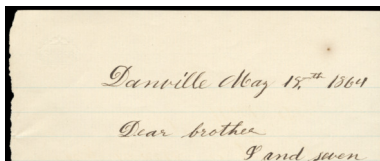 Danville May 19th 1864
Dear brother
I and seven